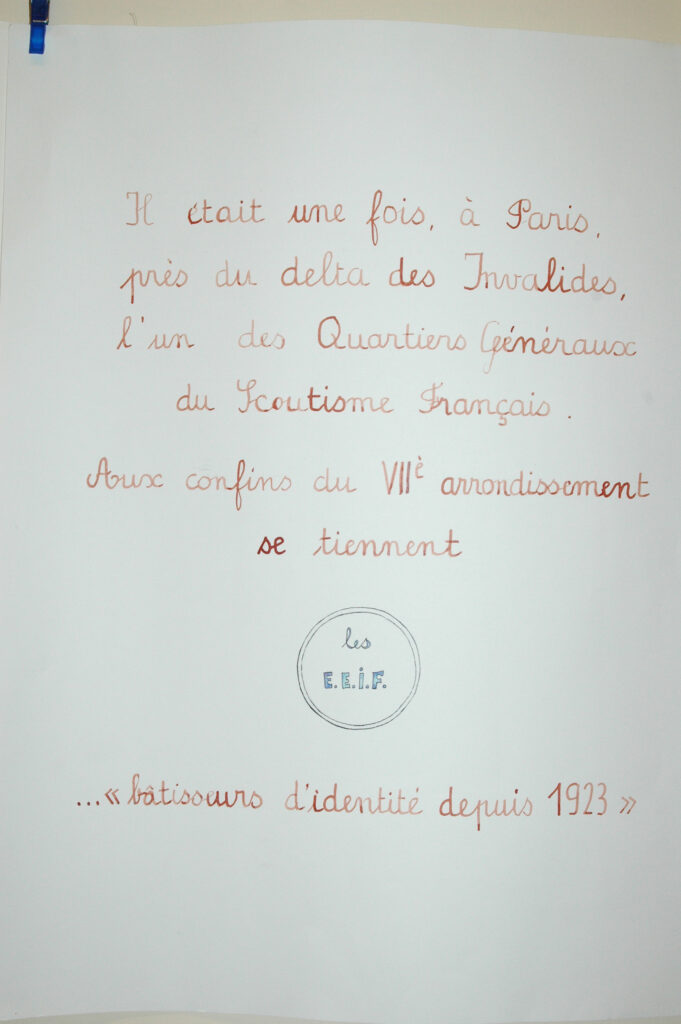 Il était une fois, à Paris,
près du delta des Invalides,
l'un des Quartiers Généraux
du Scoutisme Français.
Aux confins du VIIè arrondissement
se tiennent
les
E.E.i.F.
...« bâtisseurs d'identité depuis 1923 »